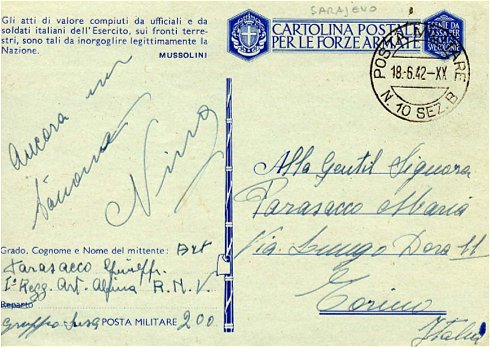 SARAJEVO
Gli atti di valore compiuti da ufficiali e da
soldati italiani dell'Esercito, sui fronti terre-
stri, sono tali da inorgoglire legittimamente la
Nazione.
MUSSOLINI
CARTOLINA POSTALE
PER LE FORZE ARMATE
POSTA MILITARE
18.6.42-XX
N. 10 SEZ. B
Ancora un
Nino
Alla Gentil Signora
Tarasacco Maria
Via Lungo Dora 11
Torino
Italia
Grado, Cognome e Nome del mittente: Art
Tarasacco
1° Regg. Art. Alpina R.N.V.
Reparto
Gruppo Susa POSTA MILITARE 200